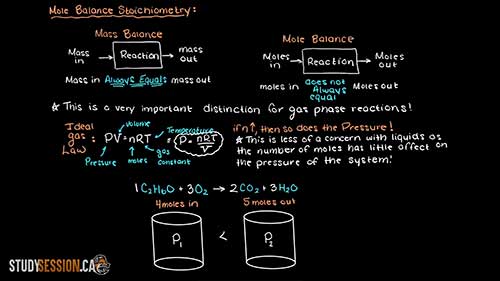 Mole Balance Stoichiometry:
Mass Balance
Mass in → Reaction → mass out
Mass in Always Equals mass out
Mole Balance
Moles in → Reaction → Moles out
moles in does not Always equal Moles out
* This is a very important distinction for gas phase reactions!
Ideal gas Law : PV=nRT = P = nRT/V
volume
Temperature
Pressure
moles
gas constant
if n↑, then so does the Pressure!
* This is less of a concern with liquids as
the number of moles has little effect on
the pressure of the system!
1C2H6O + 3O2 → 2CO2 + 3H2O
4 moles in
5 moles out
P1 < P2
STUDYSESSION.CA